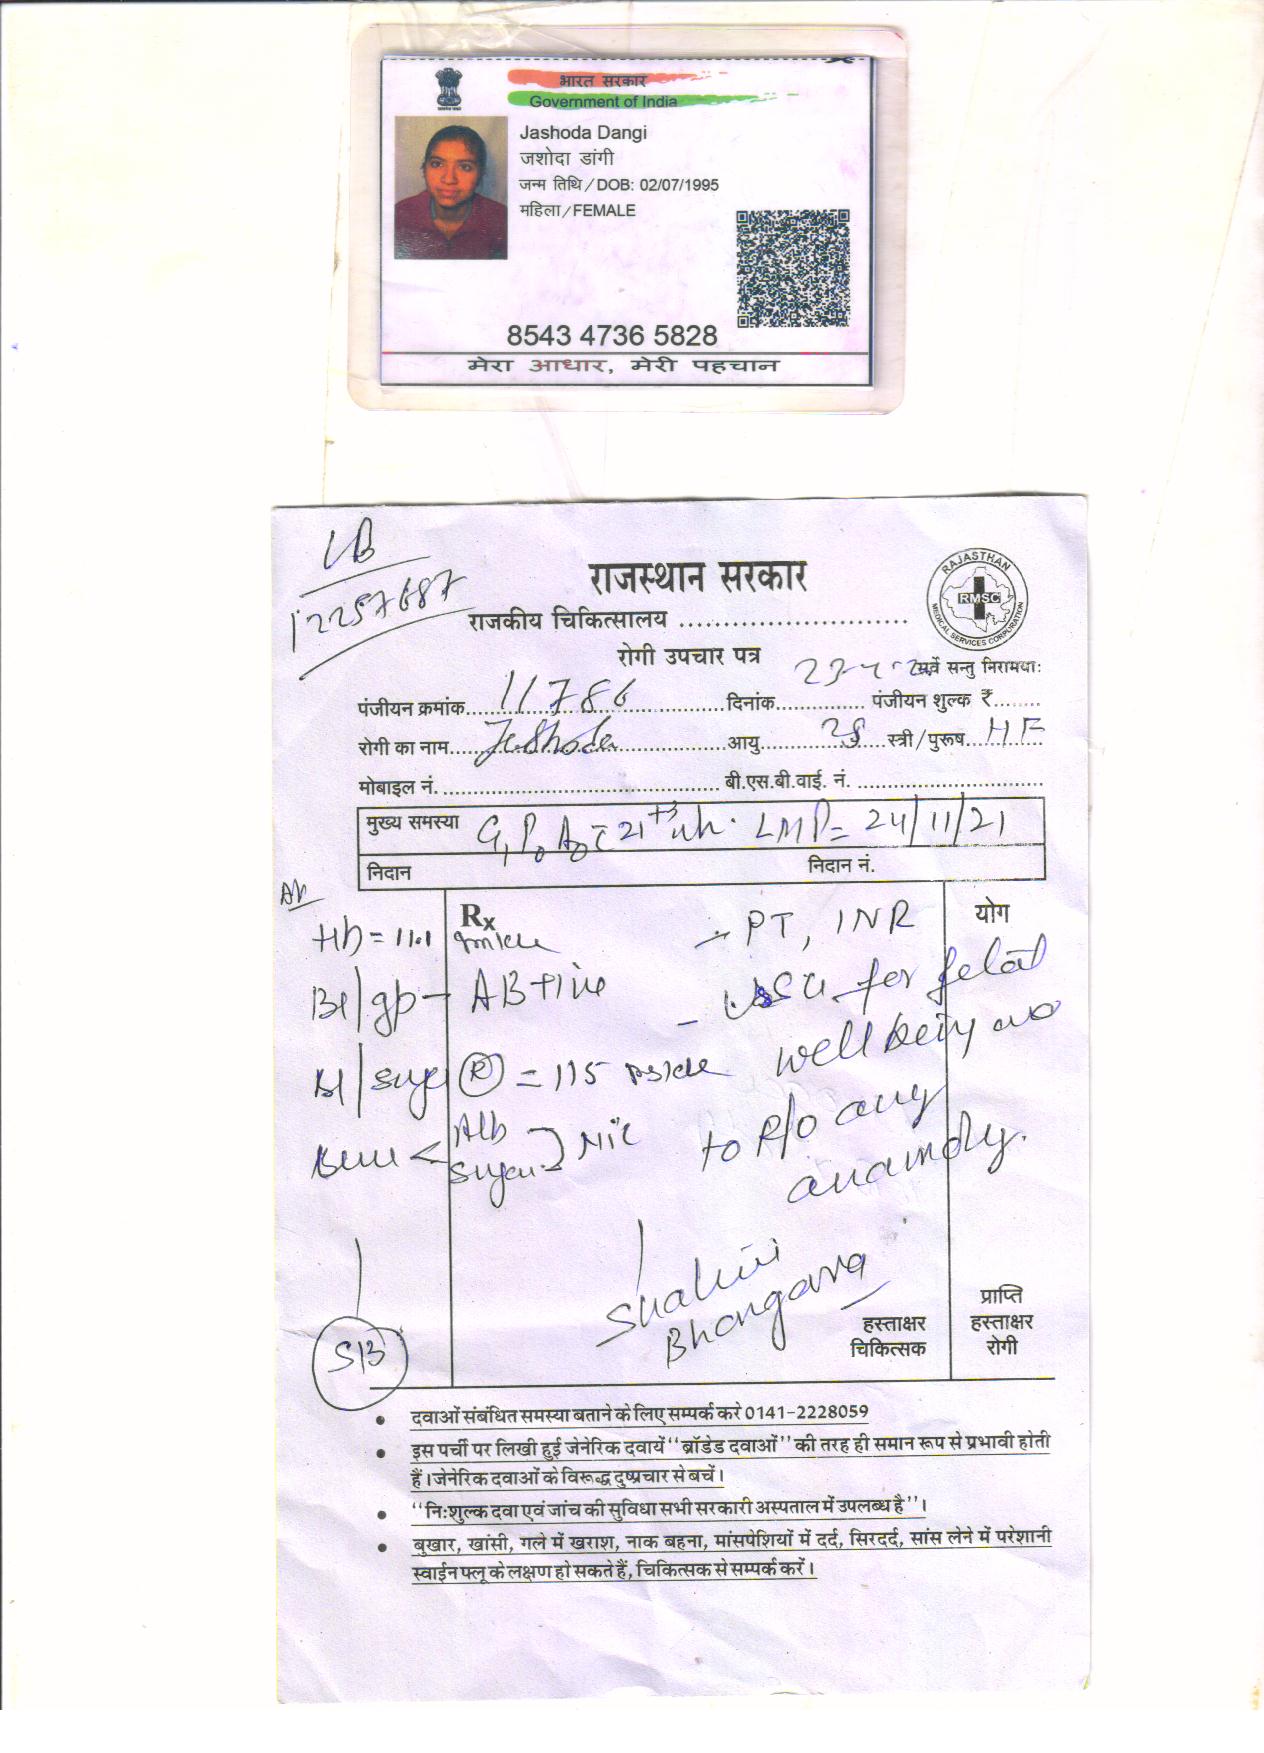 भारत सरकार
Government of India
Jashoda Dangi
जशोदा डांगी
जन्म तिथि / DOB: 02/07/1995
महिला / FEMALE
8543 4736 5828
मेरा आधार, मेरी पहचान
12257687
राजस्थान सरकार
RAJASTHAN
RMSC
MEDICAL SERVICES CORPORATION
राजकीय चिकित्सालय
रोगी उपचार पत्र
सर्वे सन्तु निरामयाः
पंजीयन क्रमांक 11786 दिनांक पंजीयन शुल्क ₹
रोगी का नाम Jashoda आयु स्त्री/पुरूष HF
मोबाइल नं. बी.एस.बी.वाई. नं.
मुख्य समस्या G1P0A0 c 21+3 wk. LMP= 24/11/21
निदान निदान नं.
Rx योग
Hb = 11.1 gm/dl - PT, INR
Bl/gp - AB+ive - USG for fetal
well being and
Bl/sugar (R) = 115
to R/o any
Alb
Sugar Nil
anamoly.
Bhangava
SB
हस्ताक्षर
चिकित्सक
प्राप्ति
हस्ताक्षर
रोगी
• दवाओं संबंधित समस्या बताने के लिए सम्पर्क करे 0141-2228059
• इस पर्ची पर लिखी हुई जेनेरिक दवायें "ब्रॉडेड दवाओं" की तरह ही समान रूप से प्रभावी होती
हैं। जेनेरिक दवाओं के विरूद्ध दुष्प्रचार से बचें।
• "निःशुल्क दवा एवं जांच की सुविधा सभी सरकारी अस्पताल में उपलब्ध है"।
• बुखार, खांसी, गले में खराश, नाक बहना, मांसपेशियों में दर्द, सिरदर्द, सांस लेने में परेशानी
स्वाईन फ्लू के लक्षण हो सकते हैं, चिकित्सक से सम्पर्क करें।